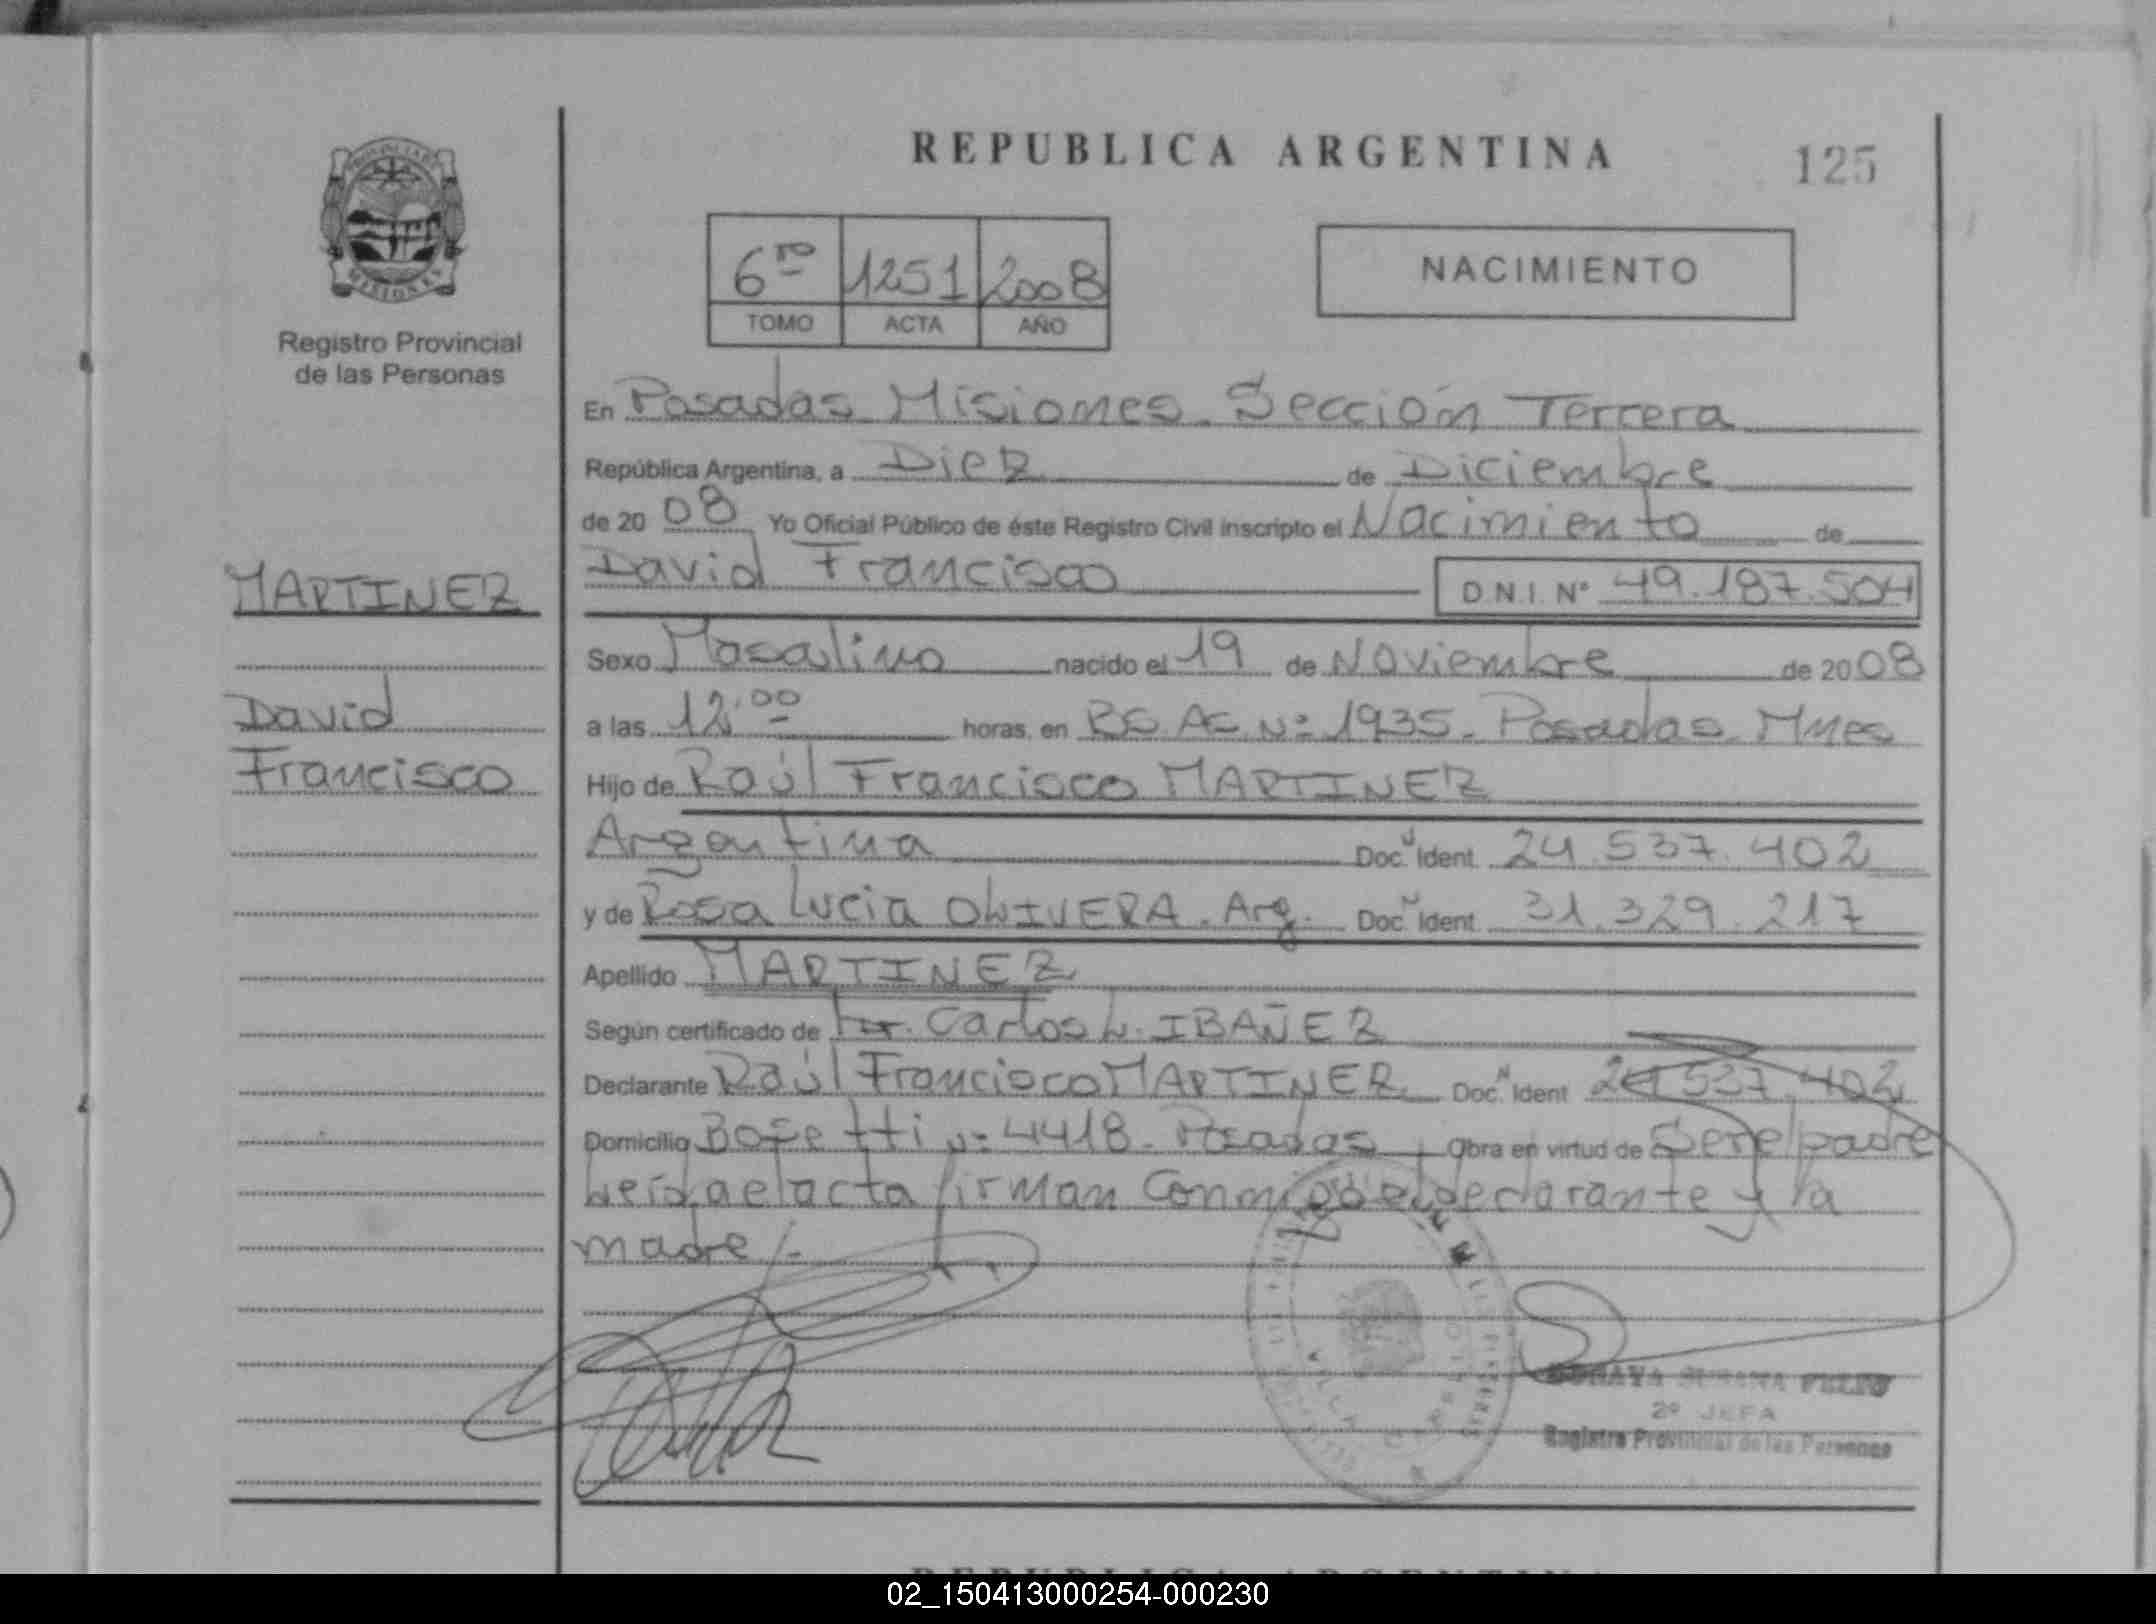 REPUBLICA ARGENTINA
125
PROVINCIA DE
MISIONES
Registro Provincial
de las Personas
6to 1251 2008
TOMO ACTA AÑO
NACIMIENTO
En Posadas Misiones. Sección Tercera
República Argentina, a Diez de Diciembre
de 20 08 Yo Oficial Público de éste Registro Civil inscripto el Nacimiento de
David Francisco D.N.I. Nº 49.187.504
MARTINEZ
David
Francisco
Sexo Masculino nacido el 19 de Noviembre de 2008
a las 12.00 horas, en BS. AS. Nº 1935. Posadas Mnes
Hijo de Raúl Francisco MARTINEZ
Argentina Doc. Ident. 24.537.402
y de Rosa Lucia OLIVERA. Arg. Doc. Ident. 31.329.217
Apellido MARTINEZ
Según certificado de Dr. Carlos L. IBAÑEZ
Declarante Raúl Francisco MARTINEZ Doc. Ident. 24.537.402
Domicilio Bosetti Nº 4418. Posadas Obra en virtud de Ser el padre
Leída el acta firman Conmigo el declarante y la
madre.-
SUSANA
2º JEFA
Registro Provincial de las Personas
REPUBLICA ARGENTINA
02_150413000254-000230